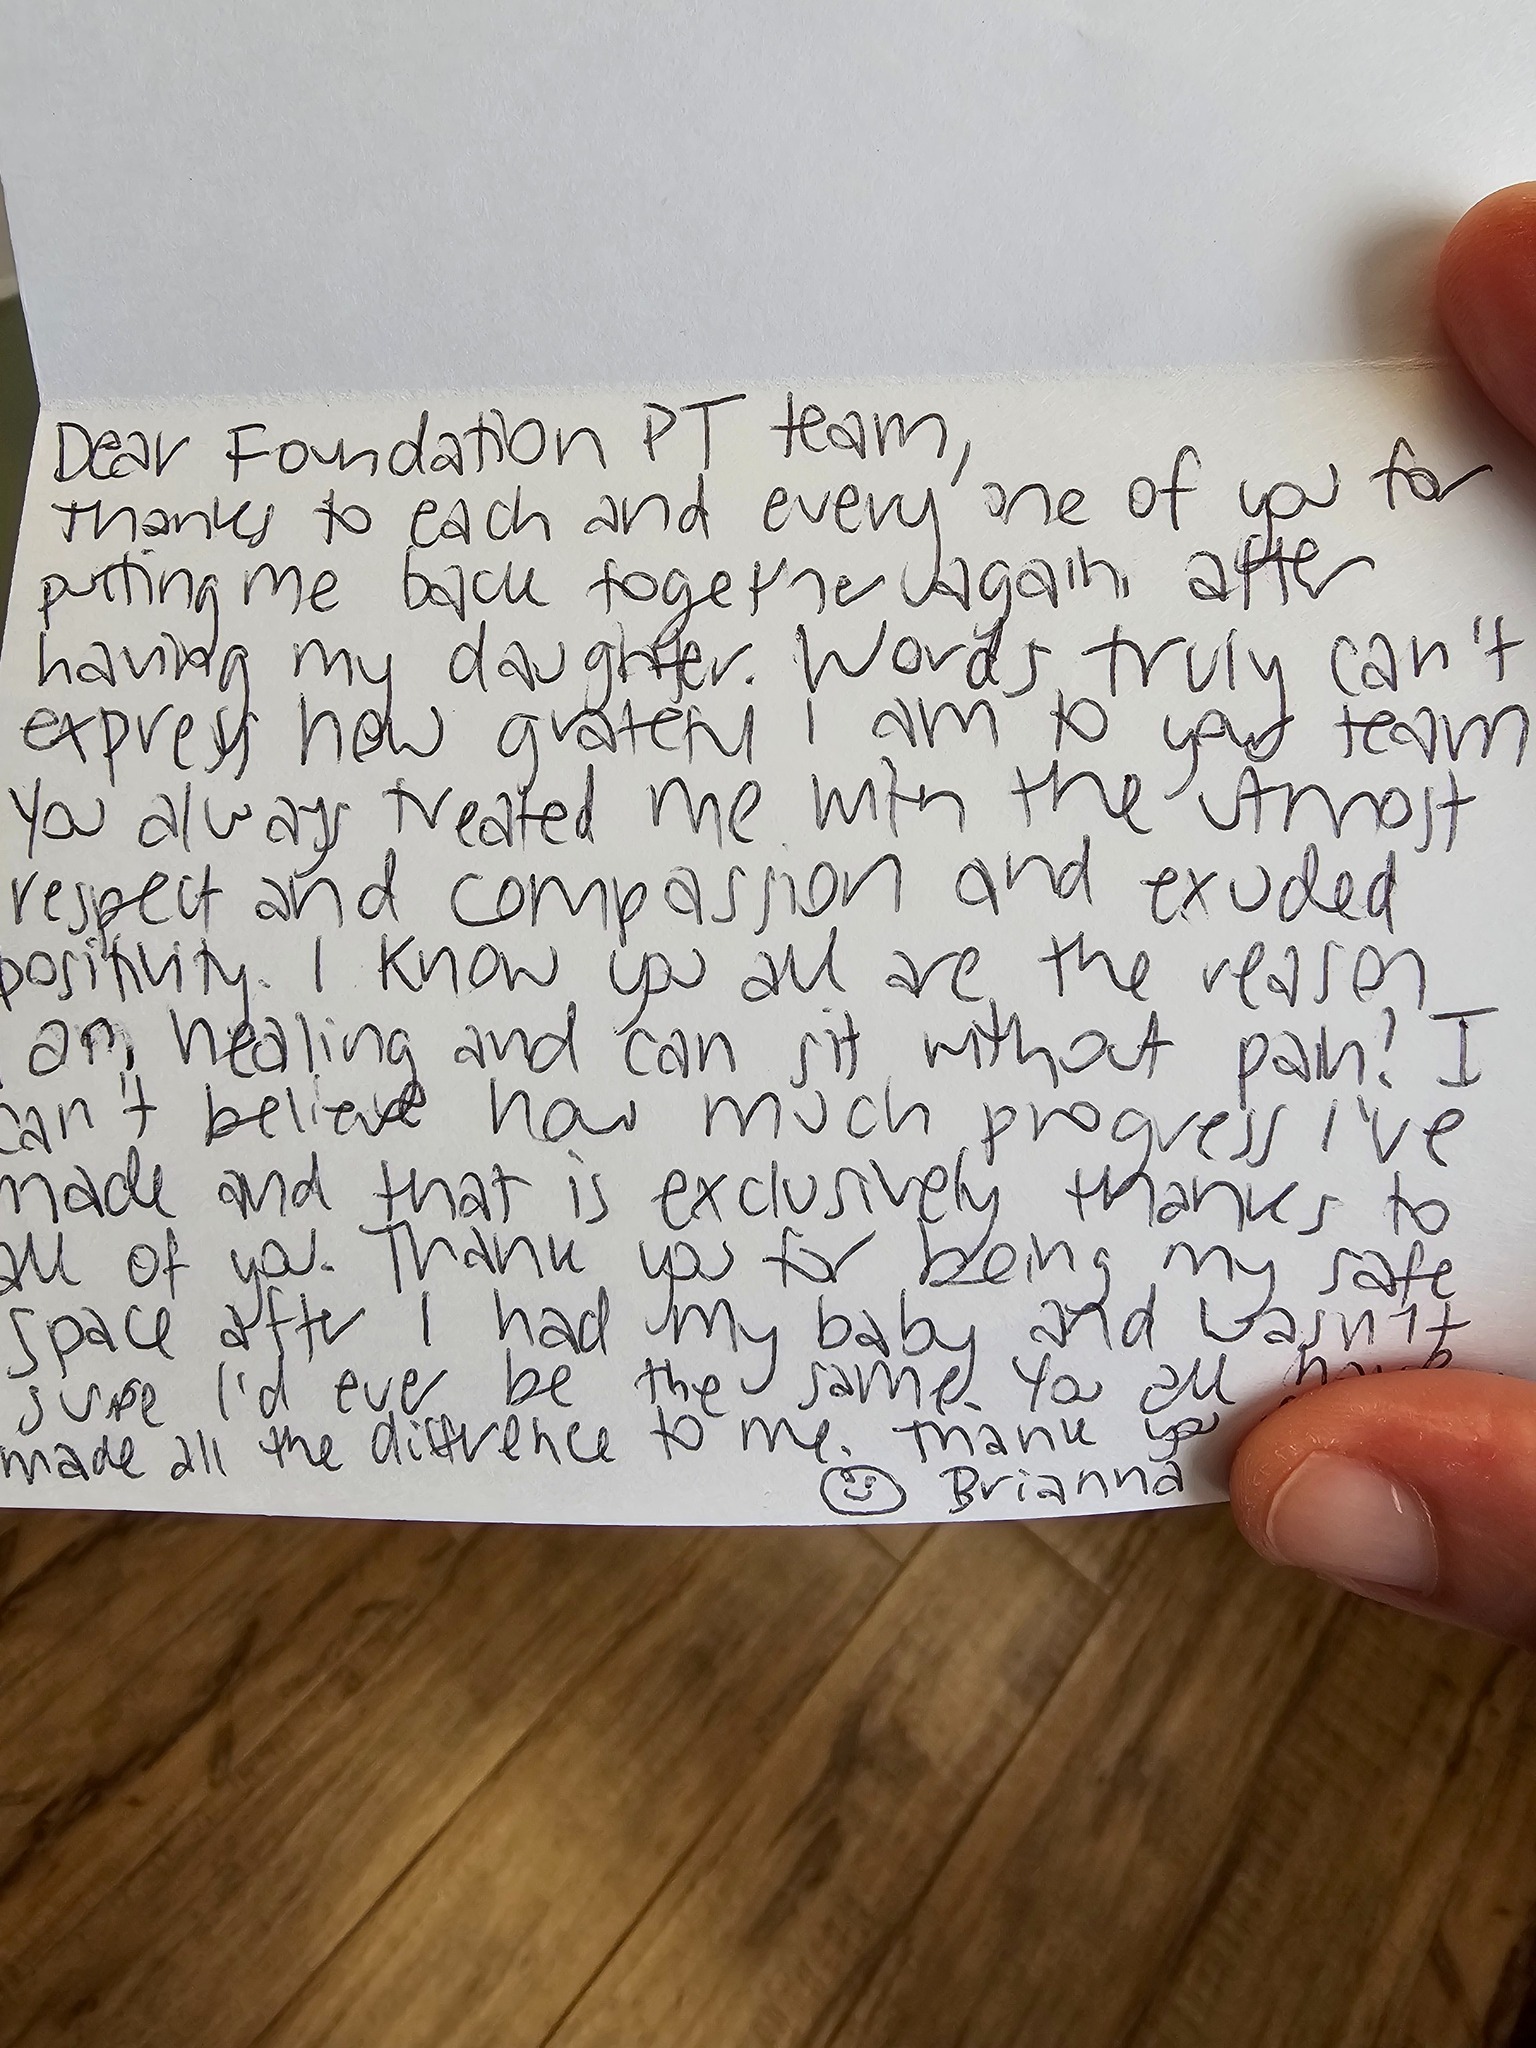 Dear Foundation PT team,
thanks to each and every one of you for
putting me back together again after
having my daughter. Words truly can't
express how grateful I am to your team
You always treated me with the utmost
respect and compassion and exuded
positivity. I know you all are the reason
I am healing and can sit without pain! I
can't believe how much progress I've
made and that is exclusively thanks to
all of you. Thank you for being my safe
space after I had my baby and wasn't
sure I'd ever be the same. You all have
made all the difference to me. Thank you
Brianna